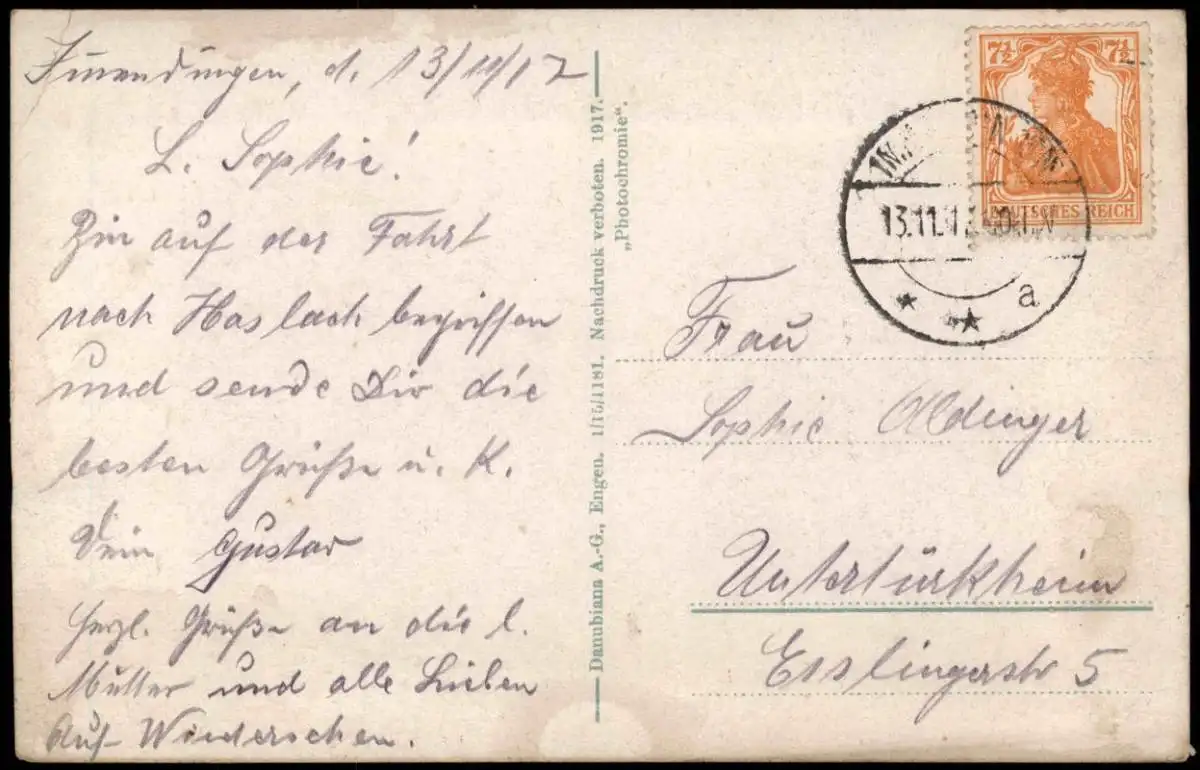 Immendingen, d. 13/11/17
L. Sophie!
Bin auf der Fahrt
nach Haslach begriffen
und sende Dir die
besten Grüße u. K.
Dein Gustav
Herzl. Grüße an die l.
Mutter und alle Lieben
Auf Wiedersehen.
Danubiana A.-G., Engen. 1/15/1181. Nachdruck verboten. 1917.
„Photochromie“.
7½ 7½
DEUTSCHES REICH
13.11.17
a
Frau
Sophie Aldinger
Untertürkheim
Esslingerstr 5